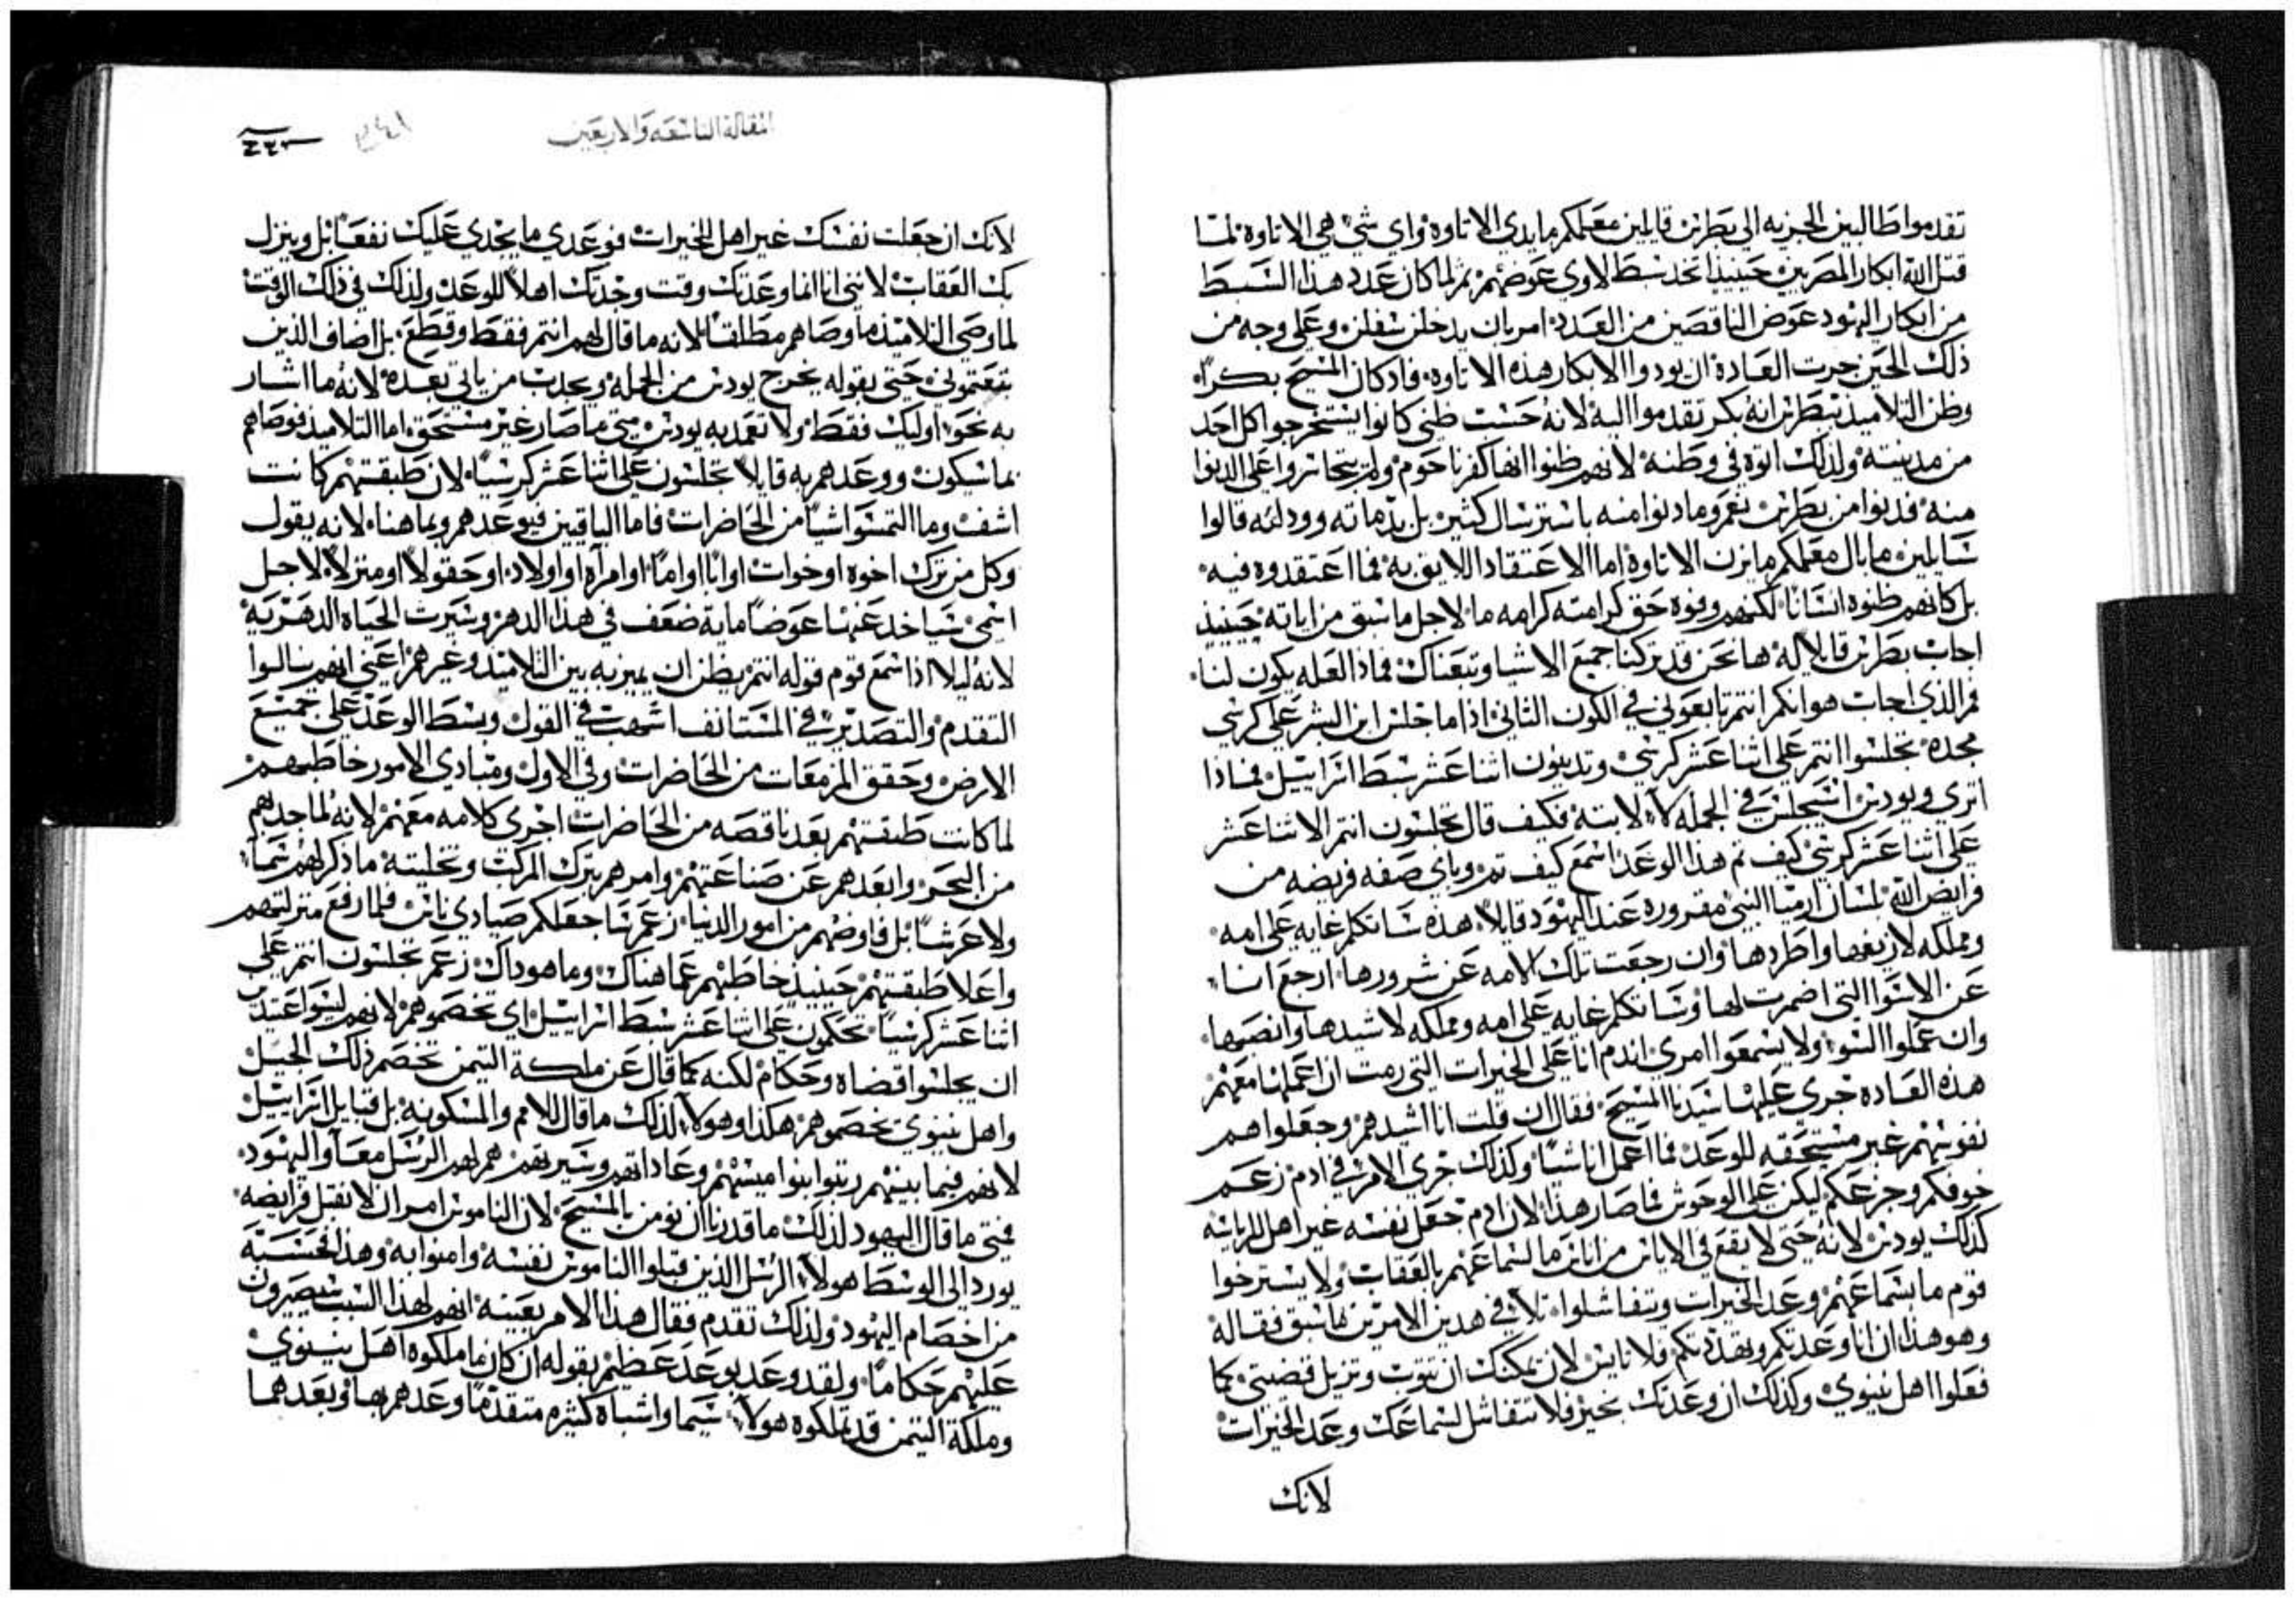 تقدموا طالبين الجزيه الى بطرس قايلين معلمكم ما يدي الاتاوة واي شي هي الاتاوة لما
قتل الله ابكار المصريين حينيذا تخد سبط لاوي عوضهم ثم لما كان عدد هذا السبط
من ابكار اليهود عوض الناقصين من العدد امر بان يدخلن شقلن وعلى وجه من
ذلك الحين جرت العادة ان يودوا الابكار هذه الاتاوه فادكان المسيح بكراً
وظن التلاميذ ببطرس انه بكر تقدموا اليه لانه حسب ظني كانوا يستخرجوا كل احد
من مدينته ولذلك اتوه في وطنه لانهم ظنوا انها كفرناحوم ولم يتجاسروا على الدنوا
منه فدنوا من بطرس نعم وما دنوا منه باسترسال كثير بل بذماته وودلته قالوا
سايلين ما بال معلمكم ما يزن الاتاوة اما الاعتقاد اللايق به فما اعتقدوه فيه
بل كانهم ظنوه انسانا لكنهم وفوه حق كرامته كرامه ما لاجل ما سبق من اياته حينيذ
اجاب بطرس قايلا له ها نحن قد تركنا جميع الاشيا وتبعناك فماذا العله يكون لنا
فمالذي اجاب هو انكم انتم تابعوني في الكون الثاني اذا ما جلس ابن البشر على كرسي
مجده تجلسوا انتم على اثنا عشر كرسي وتدينون اثنا عشر سبط اسراييل فماذا
اتري ويودس اسيجلس في الجمله كلا لابته فكيف قال تجلسون انتم الاثنا عشر
على اثنا عشر كرسي كيف تم هذا الوعد اسمع كيف تم وباي صفه فريضه من
فرايض الله بلسان ارميا النبي مقروره عند اليهود قايلا هذه ساتكلم غايه على امه
ومملكه لازيغها واطردها وان رجعت تلك الامه عن شرورها ارجع انا
عن الاسوا التي اضمرت لها وساتكلم غايه على امه ومملكه لاشيدها وانصبها
وان عملوا السو ولا يسمعوا امري اندم انا على الخيرات التي رمت ان اعملها معهم
هذه العاده جري عليها سيدنا المسيح فقال ان قلت انا اشيدهم وجعلوا هم
نفوسهم غير مستحقه للوعد فما اعمل انا شيا وكذلك جري الامر في ادم زعم
خوفكم وجزعكم ليكن على الوحوش فما صار هذا لان ادم جعل نفسه غير اهل للرياسه
كذلك يودس لانه حتى لا يقع في الاياس من اناس ما لسماعهم بالعقاب ولا يسترخوا
قوم ما بسماعهم وعد الخيرات ويتفاشلوا تلافي هدين الامرين بما سبق فقاله
وهو هذا ان انا وعدتكم وتهددتكم فلا ناس لان يمكنك ان تتوب وتزيل قضيتي كما
فعلوا اهل نينوي وكذلك ان وعدتك بخير فلا تتفاشل لسماعك وعد الخيرات
لانك
المقالة التاسعه والاربعين
لانك ان جعلت نفسك غير اهل للخيرات فوعدي ما يجدي عليك نفعاً بل وينزل
بك العقاب لانني انا انما وعدتك وقت وجدتك اهلاً للوعد ولذلك في ذلك الوقت
لما وصي التلاميذ ما وصاهم مطلقا لانه ما قال لهم انتم فقط وقطع بل اضاف الذين
تبعتموني حتى بقوله يخرج يودس من الجمله ويجدب من ياتي بعده لانه ما اشار
به نحو اوليك فقط ولا تعمد به يودس متي ما صار غير مستحق اما التلاميذ فوصاهم
بما سيكون ووعدهم به قايلا تجلسون على اثنا عشر كرسيا لان طبقتهم كانت
اشف وما التمسوا شيا من الحاضرات فاما الباقين فيوعدهم وبما هنا لانه يقول
وكل من ترك اخوه او خوات او ابا او اما او امراه او اولاد او حقولاً او منزلاً لاجل
اسمي سياخد عنها عوضاً ماية ضعف في هذا الدهر وسيرث الحياه الدهريه
لانه ليلا اذا سمع قوم قوله انتم يظن ان يميز به بين التلاميذ وغيرهم اعني انهم نالوا
التقدم والتصدير في المستانف اشهب في القول وبسط الوعد على جميع
الارض وحقق المزمعات من الحاضرات وفي الاول ومبادي الامور خاطبهم
لما كانت طبقتهم بعد ناقصه من الحاضرات اجري كلامه معهم لانه لما جدبهم
من البحر وابعدهم عن صناعتهم وامرهم بترك المركب وتخليته ما ذكر لهم سما
ولا عرشاً بل فاوضهم من امور الدنيا زعم هنا جعلكم صيادي ناس فلما رفع منزلتهم
واعلا طبقتهم حينيذ خاطبهم عما هناك وما هو داك زعم تجلسون انتم على
اثنا عشر كرسياً تحكمون على اثنا عشر سبط اسراييل اي تخصموهم لانهم ليسوا عتيدين
ان يجلسوا قضاه وحكام لكنه كما قال عن ملكة التيمن تخصم ذلك الجيل
واهل نينوي تخصموهم هكذا وهولاء لذلك ما قال للامم والمسكونه بل قبايل اسراييل
لانهم فيما بينهم ربتوا بنواميسهم وعاداتهم وسيرتهم هم لهم الرسل معاً واليهود
فمتى ما قال اليهود لذلك ما قدرنا ان نومن بالمسيح لان الناموس امر ان لا نقبل فرايضه
يورد الى الوسط هولاء الرسل الذين قبلوا الناموس نفسه وامنوا به وهذا بحسبه
من اخصام اليهود ولذلك تقدم فقال هذا الامر بعينه انهم لهذا السبب سيصيرون
عليهم حكاما ولقد وعد بوعد عظيم بقوله ان كان ما ملكوه اهل نينوي
وملكة التيمن قد تملكوه هولاء سيما واشباه كثيره متقدماً وعدهم بها وبعدهما